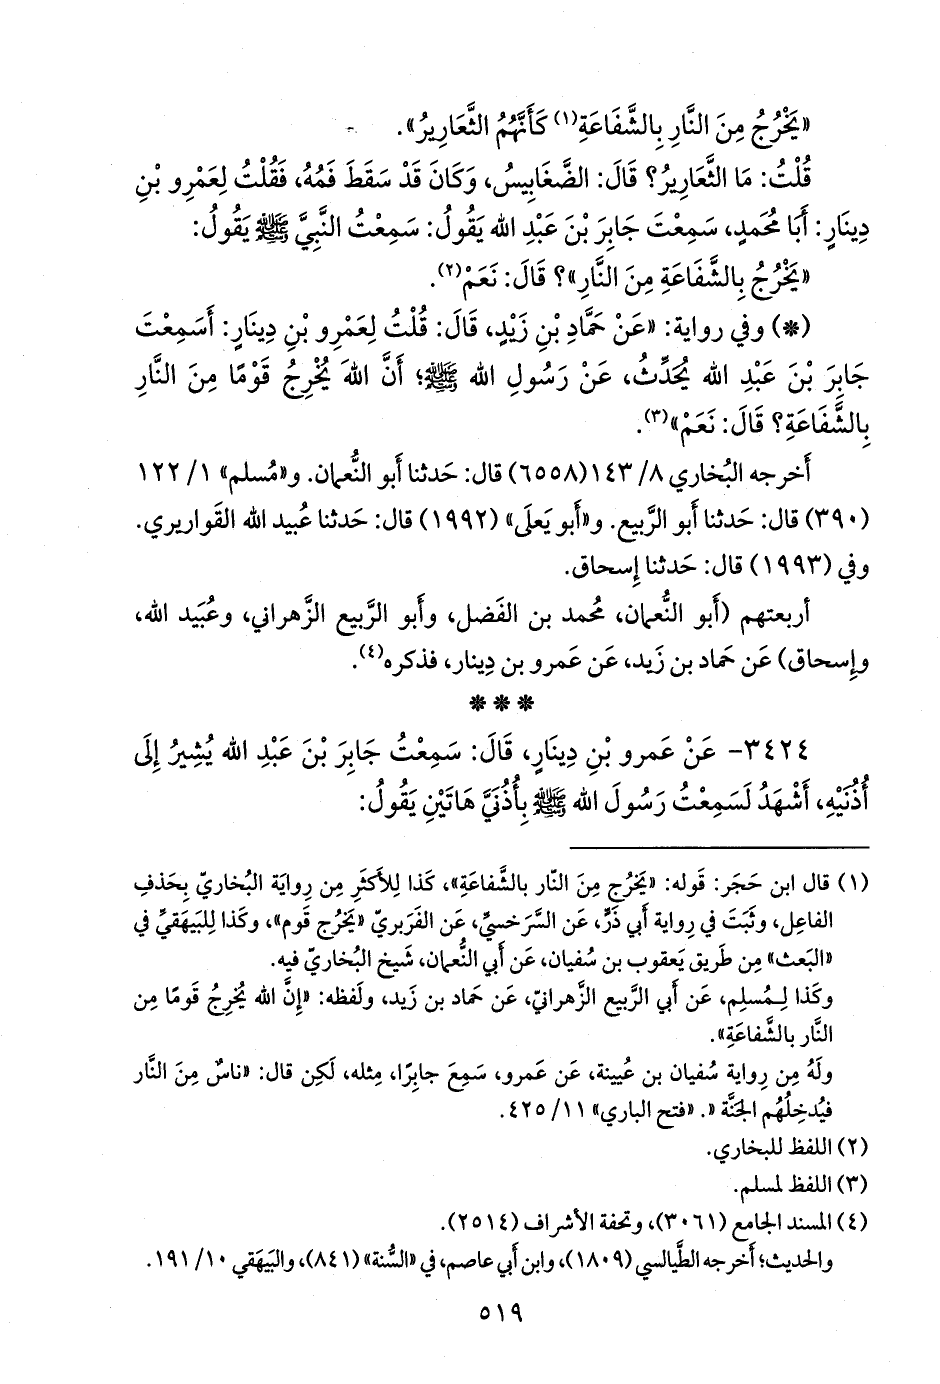 «يَخْرُجُ مِنَ النَّارِ بِالشَّفَاعَةِ(١) كَأَنَّهُمُ الثَّعَارِيرُ».
قُلْتُ: مَا الثَّعَارِيرُ؟ قَالَ: الضَّغَابِيسُ، وَكَانَ قَدْ سَقَطَ فَمُهُ، فَقُلْتُ لِعَمْرِو بْنِ
دِينَارٍ: أَبَا مُحَمدٍ، سَمِعْتَ جَابِرَ بْنَ عَبْدِ الله يَقُولُ: سَمِعْتُ النَّبِيَّ ﷺ يَقُولُ:
«يَخْرُجُ بِالشَّفَاعَةِ مِنَ النَّارِ»؟ قَالَ: نَعَمْ(٢).
(*) وفي رواية: «عَنْ حَمَّادِ بْنِ زَيْدٍ، قَالَ: قُلْتُ لِعَمْرِو بْنِ دِينَارٍ: أَسَمِعْتَ
جَابِرَ بْنَ عَبْدِ الله يُحَدِّثُ، عَنْ رَسُولِ الله ﷺ؛ أَنَّ اللهَ يُخْرِجُ قَوْمًا مِنَ النَّارِ
بِالشَّفَاعَةِ؟ قَالَ: نَعَمْ»(٣).
أَخرجه البُخاري ٨/ ١٤٣(٦٥٥٨) قال: حَدثنا أَبو النُّعمان. و«مُسلم» ١/ ١٢٢
(٣٩٠) قال: حَدثنا أَبو الرَّبيع. و«أَبو يَعلَى» (١٩٩٢) قال: حَدثنا عُبيد الله القَواريري.
وفي (١٩٩٣) قال: حَدثنا إِسحاق.
أَربعتهم (أَبو النُّعمان، مُحمد بن الفَضل، وأَبو الرَّبيع الزَّهراني، وعُبَيد الله،
وإِسحاق) عَن حَماد بن زَيد، عَن عَمرو بن دِينار، فذكره(٤).
* * *
٣٤٢٤- عَنْ عَمرو بْنِ دِينَارٍ، قَالَ: سَمِعْتُ جَابِرَ بْنَ عَبْدِ الله يُشِيرُ إِلَى
أُذُنَيْهِ، أَشْهَدُ لَسَمِعْتُ رَسُولَ الله ﷺ بِأُذُنَيَّ هَاتَيْنِ يَقُولُ:
(١) قال ابن حَجَر: قَوله: «يَخرُج مِنَ النّار بالشَّفاعَةِ»، كَذا لِلأَكثَرِ مِن رِوايَة البُخاريّ بِحَذفِ
الفاعِل، وثَبَتَ في رِواية أَبي ذَرٍّ، عَن السَّرَخسيِّ، عَن الفَرَبريّ «يَخرُج قَوم»، وكَذا لِلبَيهَقيِّ في
«البَعث» مِن طَريق يَعقوب بن سُفيان، عَن أَبي النُّعمان، شَيخ البُخاريّ فيه.
وكَذا لِـمُسلِم، عَن أَبي الرَّبيع الزَّهرانيّ، عَن حَماد بن زَيد، ولَفظه: «إِنَّ الله يُخرِجُ قَومًا مِن
النَّار بالشَّفاعَةِ».
ولَهُ مِن رِواية سُفيان بن عُيينة، عَن عَمرو، سَمِعَ جابِرًا، مِثله، لَكِن قال: «ناسٌ مِنَ النَّار
فيُدخِلُهُم الجَنَّة ». «فتح الباري» ١١/ ٤٢٥.
(٢) اللفظ للبخاري.
(٣) اللفظ لمسلم.
(٤) المسند الجامع (٣٠٦١)، وتحفة الأشراف (٢٥١٤).
والحَديث؛ أَخرجه الطَّيالسي (١٨٠٩)، وابن أَبي عاصم، في «السُّنة» (٨٤١)، والبَيهَقي ١٠/ ١٩١.
٥١٩